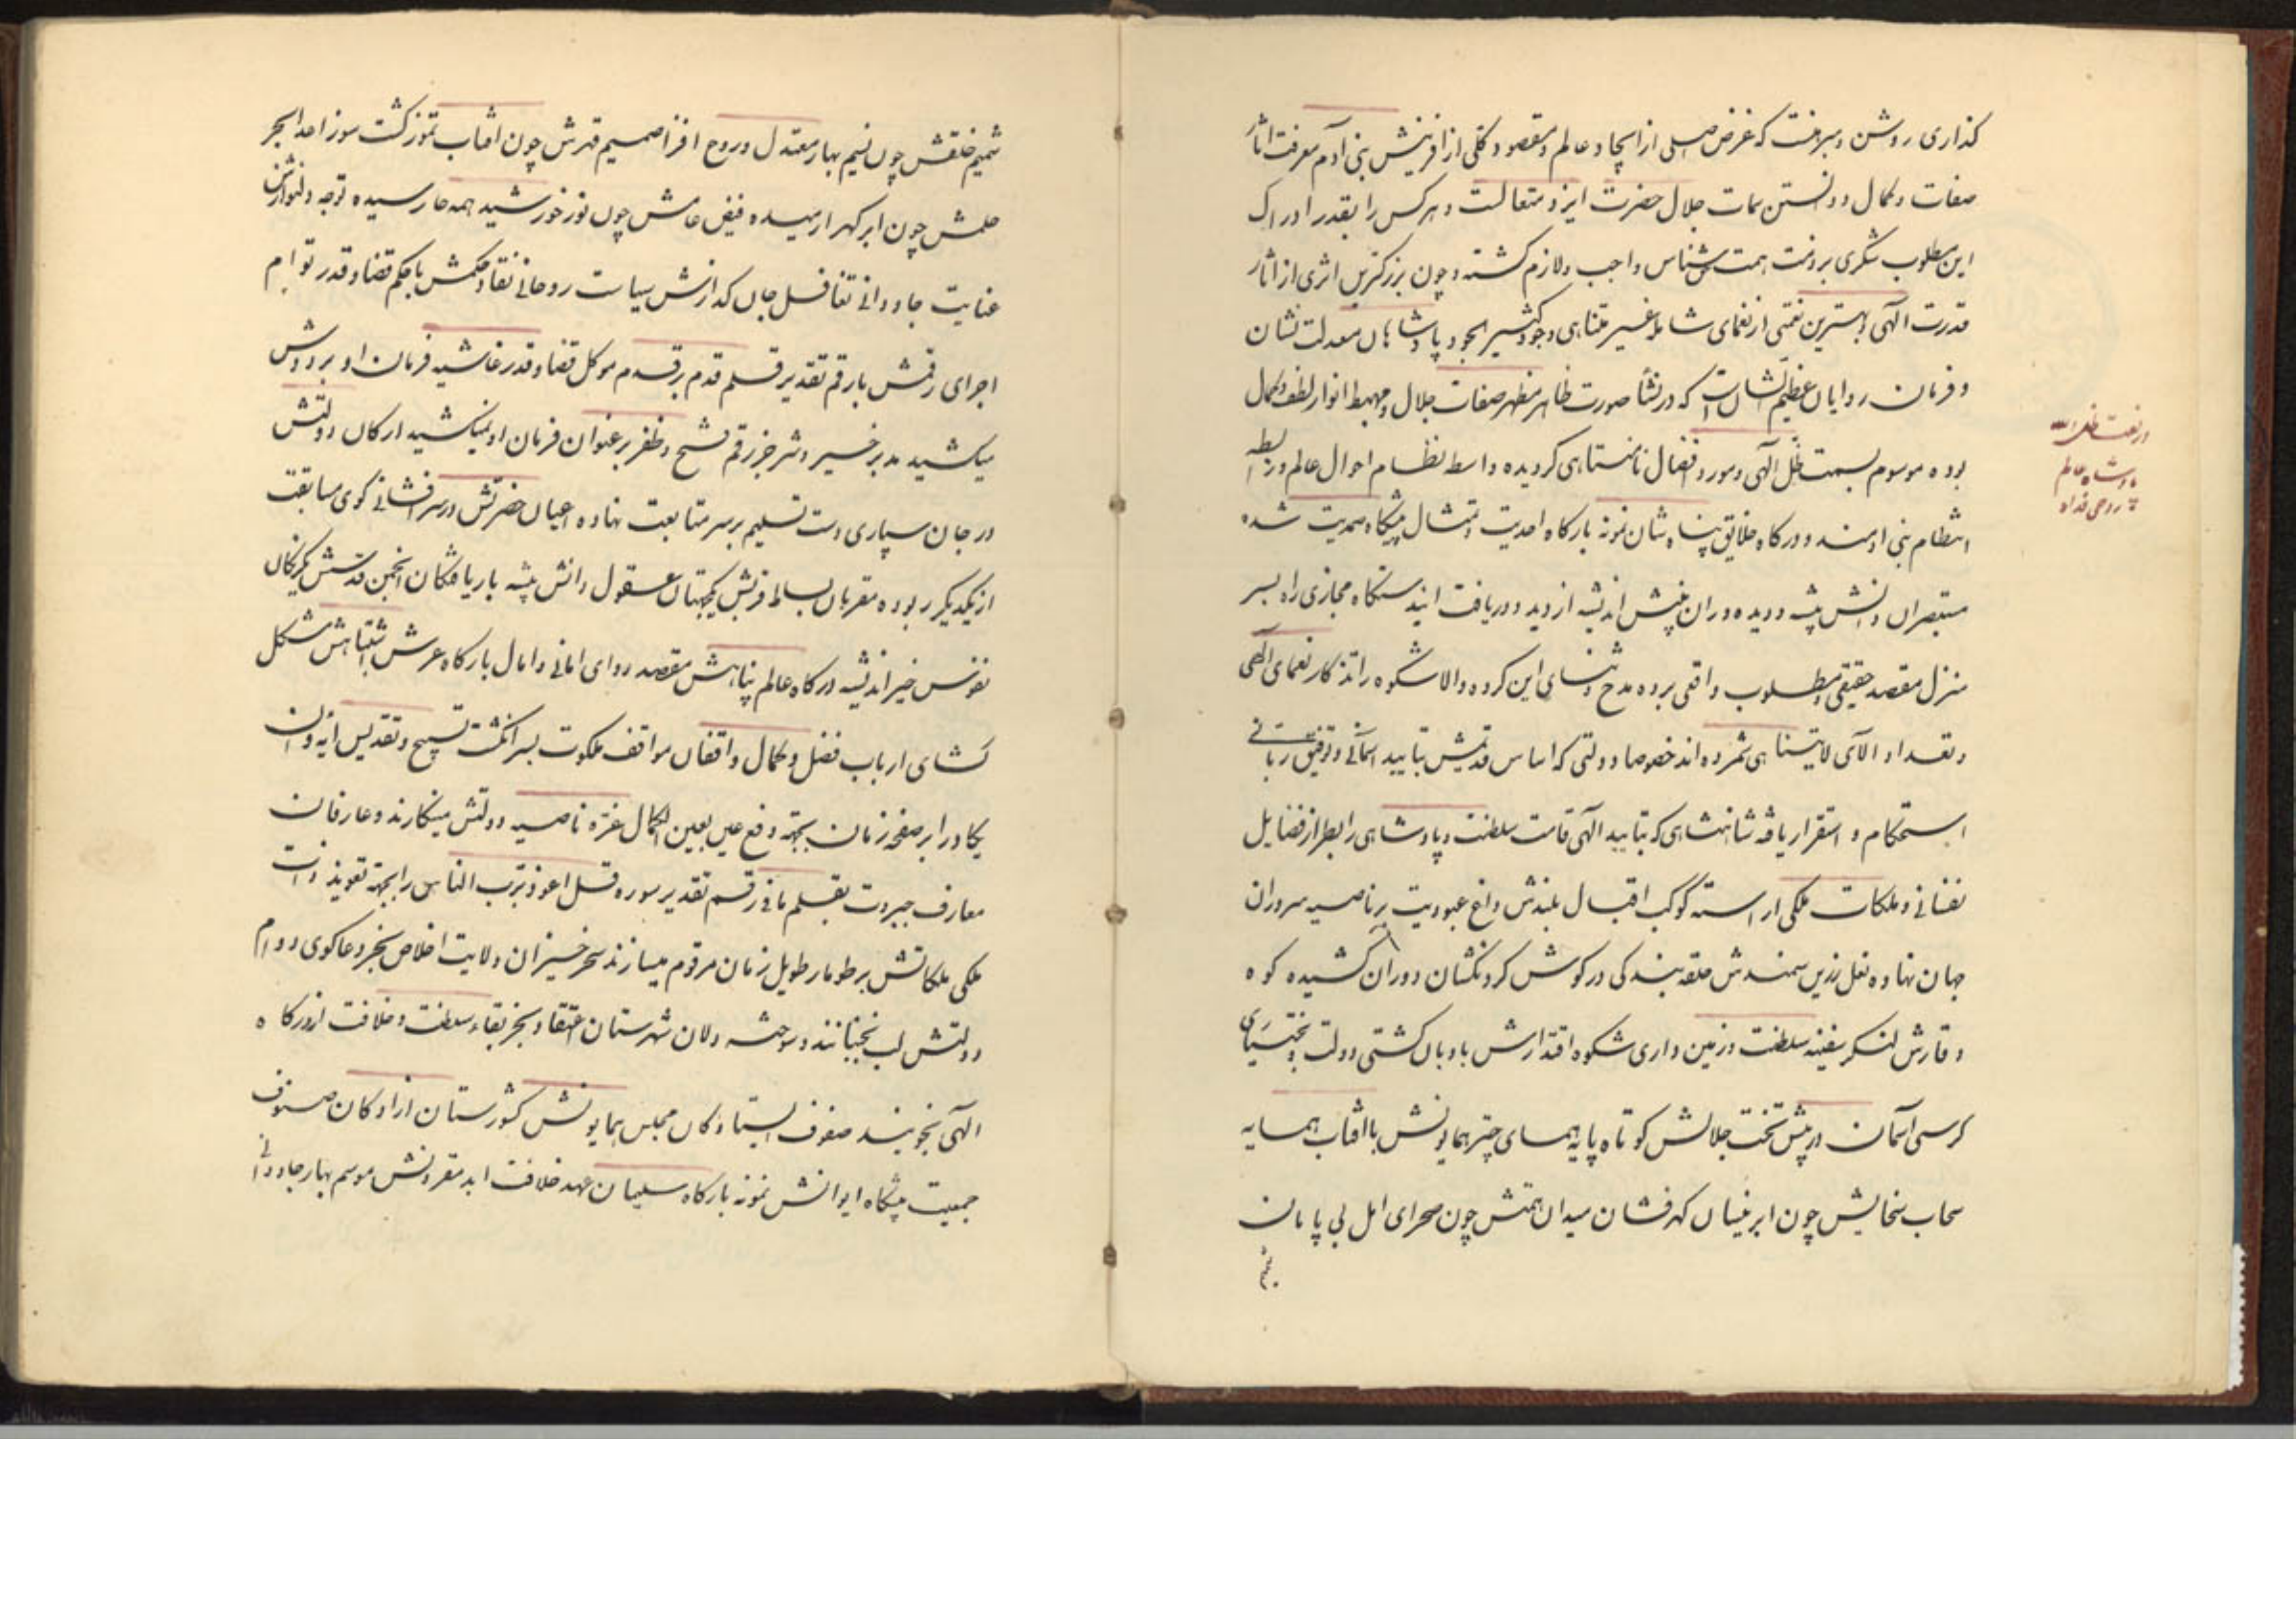 کذاری روشن و مبرهنست که غرض اصلی از ایجاد عالم و مقصود کلی از افرینش بنی آدم معرفت اثار
صفات و کمال و دانستن سمات جلال حضرت ایزد متعالست و هرکس را بقدر ادراک
این مطلوب شکری بر ذمت همت حق شناس واجب و لازم کشته و چون بزرکترین اثری از اثار
قدرت الهی و بهترین نعمتی از نعمای شامله غیر متناهی وجود کثیر الجود پادشاهان معدلت نشان
و فرمان روایان عظیم الشان است که در نشأ صورت ظاهر مظهر صفات جلال و مهبط انوار لطف و کمال
بوده موسوم بسمت ظل الهی و مورد افضال نامتناهی کردیده واسطه نظام احوال عالم و رابطه
انتظام بنی ادمند و درکاه خلایق پناه شان نمونه بارکاه احدیت و تمثال پیشکاه صمدیت شده
مستبصران دانش پیشه و دیده وران بینش اندیشه از دید و دریافت اینند ستکاه مجازی راه بسر
منزل مقصد حقیقی و مطلوب واقعی برده مدح و ثنای این کروه والا شکوه را تذکار نعمای الهی
و تعداد الآی لایتناهی شمرده اند خصوصا دولتی که اساس قدیمش بتایید اسمانی و توفیق ربانی
استحکام و استقرار یافه شاهنشاهی که بتایید الهی قامت سلطنت و پادشاهی را بطراز فضایل
نفسانی و ملکات ملکی اراسته کوکب اقبال بلندش داغ عبودیت بر ناصیه سروران
جهان نهاده نعل زرین سمندش حلقه بندکی در کوش کردنکشان دوران کشیده کوه
وقارش لنکر سفینه سلطنت و زمین داری شکوه اقتدارش بادبان کشتی دولت و بختیاری
کرسی آسمان در پیش تخت جلالش کوتاه پایه همسای چتر همایونش با افتاب همسایه
سحاب سخایش چون ابر نیسان کهرفشان میدان همتش چون صحرای امل بی پایان
شمیم
در نعت ظل الله
پادشاه عالم
روحی فداه
شمیم خلقش چون نسیم بهار معتدل و روح افزا صمیم قهرش چون افتاب تموز کشت سوز اعدا بحر
حلمش چون ابر کهر ارمیده فیض عامش چون نور خورشید همه جا رسیده توجه دلنوازش
عنایت جاودانی تغافل جان کدازش سیاست روحانی نفاذ حکمش با حکم قضا و قدر توام
اجرای رقمش با رقم تقدیر قلم قدم بر قدم موکل قضا و قدر غاشیه فرمان او بر دوش
میکشید مدبر خیر و شر جز رقم فتح و ظفر بر عنوان فرمان او نمیکشید ارکان دولتش
در جان سپاری دست تسلیم بر سر متابعت نهاده اعیان حضرتش در سر افشانی کوی مسابقت
از یکدیکر ربوده مقربان بساط قربش یکجهتان عقول دانش پیشه باریافتکان انجمن قدسش یکرنکان
نفوس خیر اندیشه درکاه عالم پناهش مقصد روای امانی و امال بارکاه عرش اشتباهش مشکل
کشای ارباب فضل و کمال واقفان مواقف ملکوت بسر انکشت تسبیح و تقدیس ایه وان
یکاد را بر صفحه زمان بجهة دفع عین بعین الکمال غره ناصیه دولتش مینکارند و عارفان
معارف جبروت بقلم مانی رقم تقدیر سوره قل اعوذ برب الناس را بجهة تعویذ ذات
ملکی ملکاتش بر طومار طویل زمان مرقوم میسازند سحر خیزان ولایت اخلاص بجز دعاکوی دوام
دولتش لب نجنبانند و سوخته دلان شهرستان اعتقاد بجز بقاء سلطنت و خلافت از درکاه
الهی نجویند صفوف ایستادکان مجلس همایونش کشورستان ازادکان صنوف
جمعیت پیشکاه ایوانش نمونه بارکاه سلیمان عهد خلافت ابد مقرونش موسم بهار جاودانی